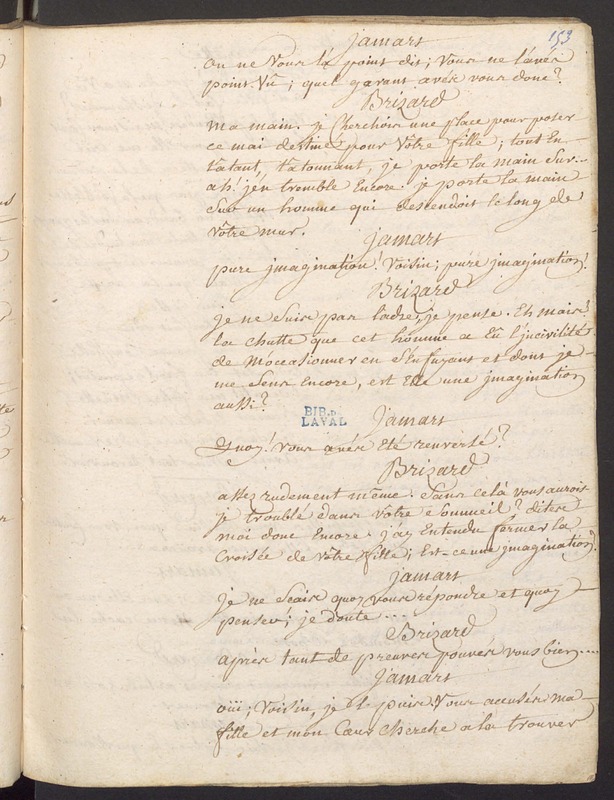 153
Jamars
on ne vous l'a point dit; vous ne l'avés
point vû; quel garant avés vous donc?
Brizard
ma main. je cherchois une place pour poser
ce mai destiné pour votre fille; tout en
tatant, tatonnant, je porte la main sur..
ah! j'en tremble encore. je porte la main
sur un homme qui descendoit le long de
vôtre mur.
Jamars
pure jmagination! voisin; pure jmagination!
Brizard
je ne suis pas ladre, je pense. Eh mais?
la chutte que cet homme a eû l'incivilité
de m'occasionner en s'enfuyant et dont je
me sens encore, est elle une jmagination
aussi?
BIB.D
LAVAL
Jamars
Quoy! vous avés eté renversé?
Brizard
assez rudement même. Sans celà vous aurois
je troublé dans votre sommeil? dites
moi donc encore. j'ay entendu fermer la
croisée de vôtre fille; est-ce une jmagination?
Jamars
je ne scais quoy vous répondre et quoy
penser; je doute...
Brizard
après tant de preuves pouvés vous bien....
Jamars
oüi; voisin, je le puis. vous accusés ma
fille et mon coeur cherche a la trouver